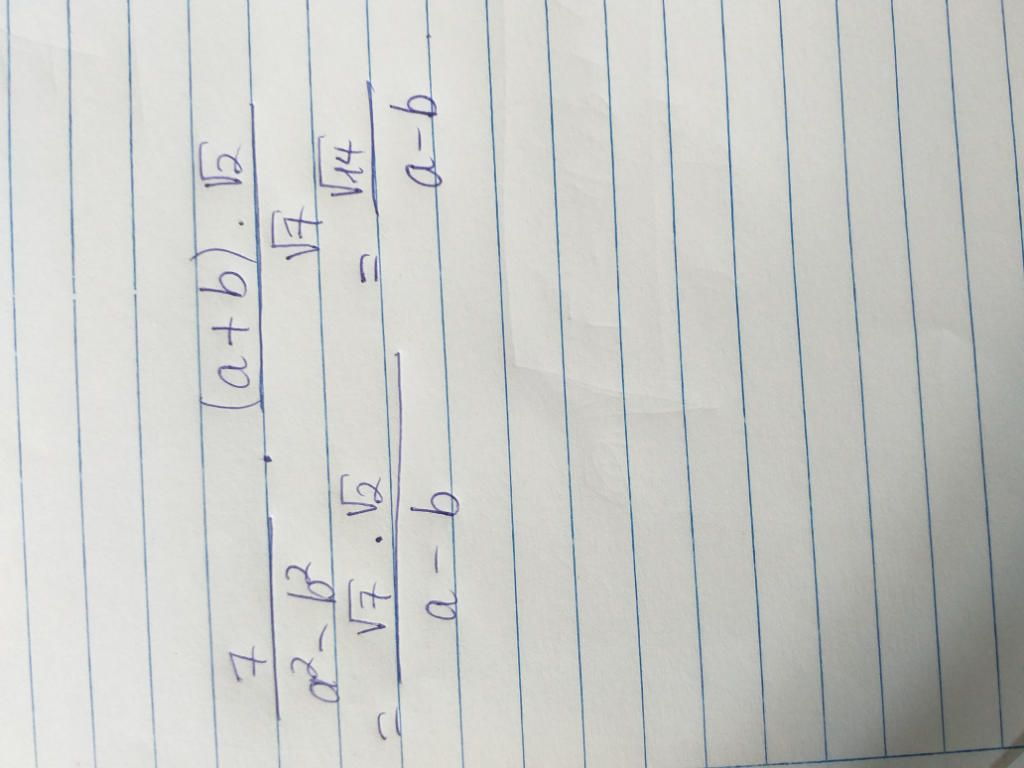 7/(a² - b²) · ((a + b) · √2)/√7
= (√7 · √2)/(a - b) = √14/(a - b)